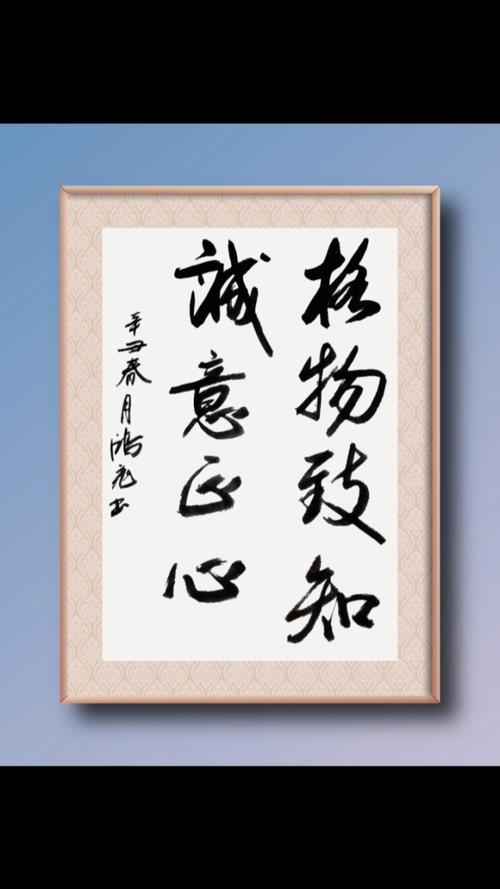 格物致知
誠意正心
辛丑春月鴻彪書